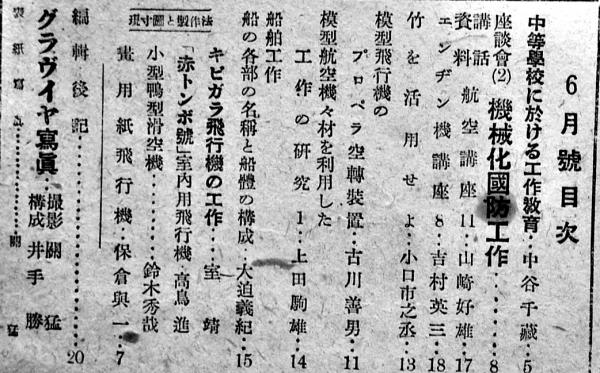 6月號目次
中等學校に於ける工作教育‥中谷千藏‥5
座談會(2) 機械化國防工作‥‥8
講話
資料 航空講座 11‥山崎好雄‥17
エンヂン機講座 8‥吉村英三‥18
竹を活用せよ‥小口市之丞‥13
模型飛行機の
プロペラ空轉裝置‥古川善男‥11
模型航空機々材を利用した
工作の研究 1‥上田駒雄‥14
船舶工作
船の各部の名稱と船體の構成‥大迫義紀‥15
現寸圖と製作法
キビガラ飛行機の工作‥‥室靖
「赤トンボ號」室內用飛行機‥高鳥進
小型鴨型滑空機‥‥‥鈴木秀哉
畫用紙飛行機‥保倉與一‥7
編輯後記‥‥‥20
グラヴイヤ寫眞 撮影 關猛
構成 井手勝
表紙寫眞‥‥‥關猛